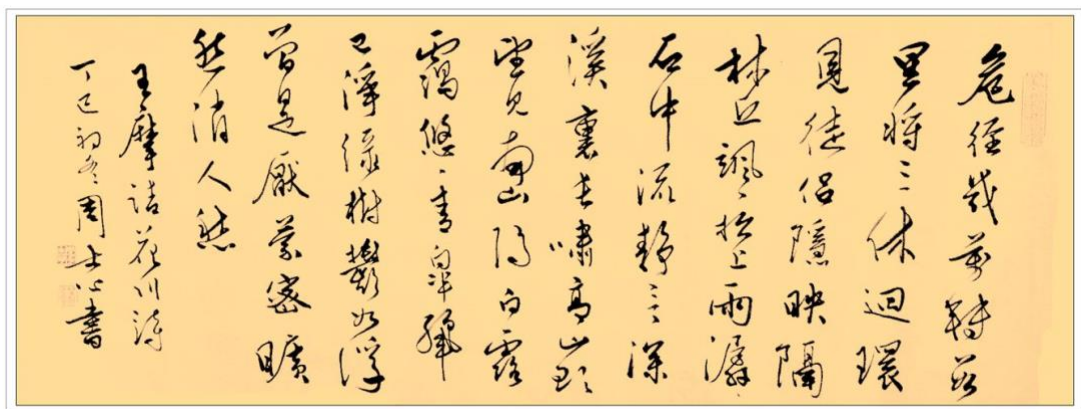 危徑幾萬轉數
里將三休迴環
見徒侶隱映隔
林丘颯〻松上雨潺〻
石中流靜言深
溪裏長嘯高山頭
望見南山陽白露
靄悠〻青皋麗
已淨綠樹鬱如浮
曾是厭蒙密曠
然消人
王摩詰花川詩
丁巳初冬周士心書